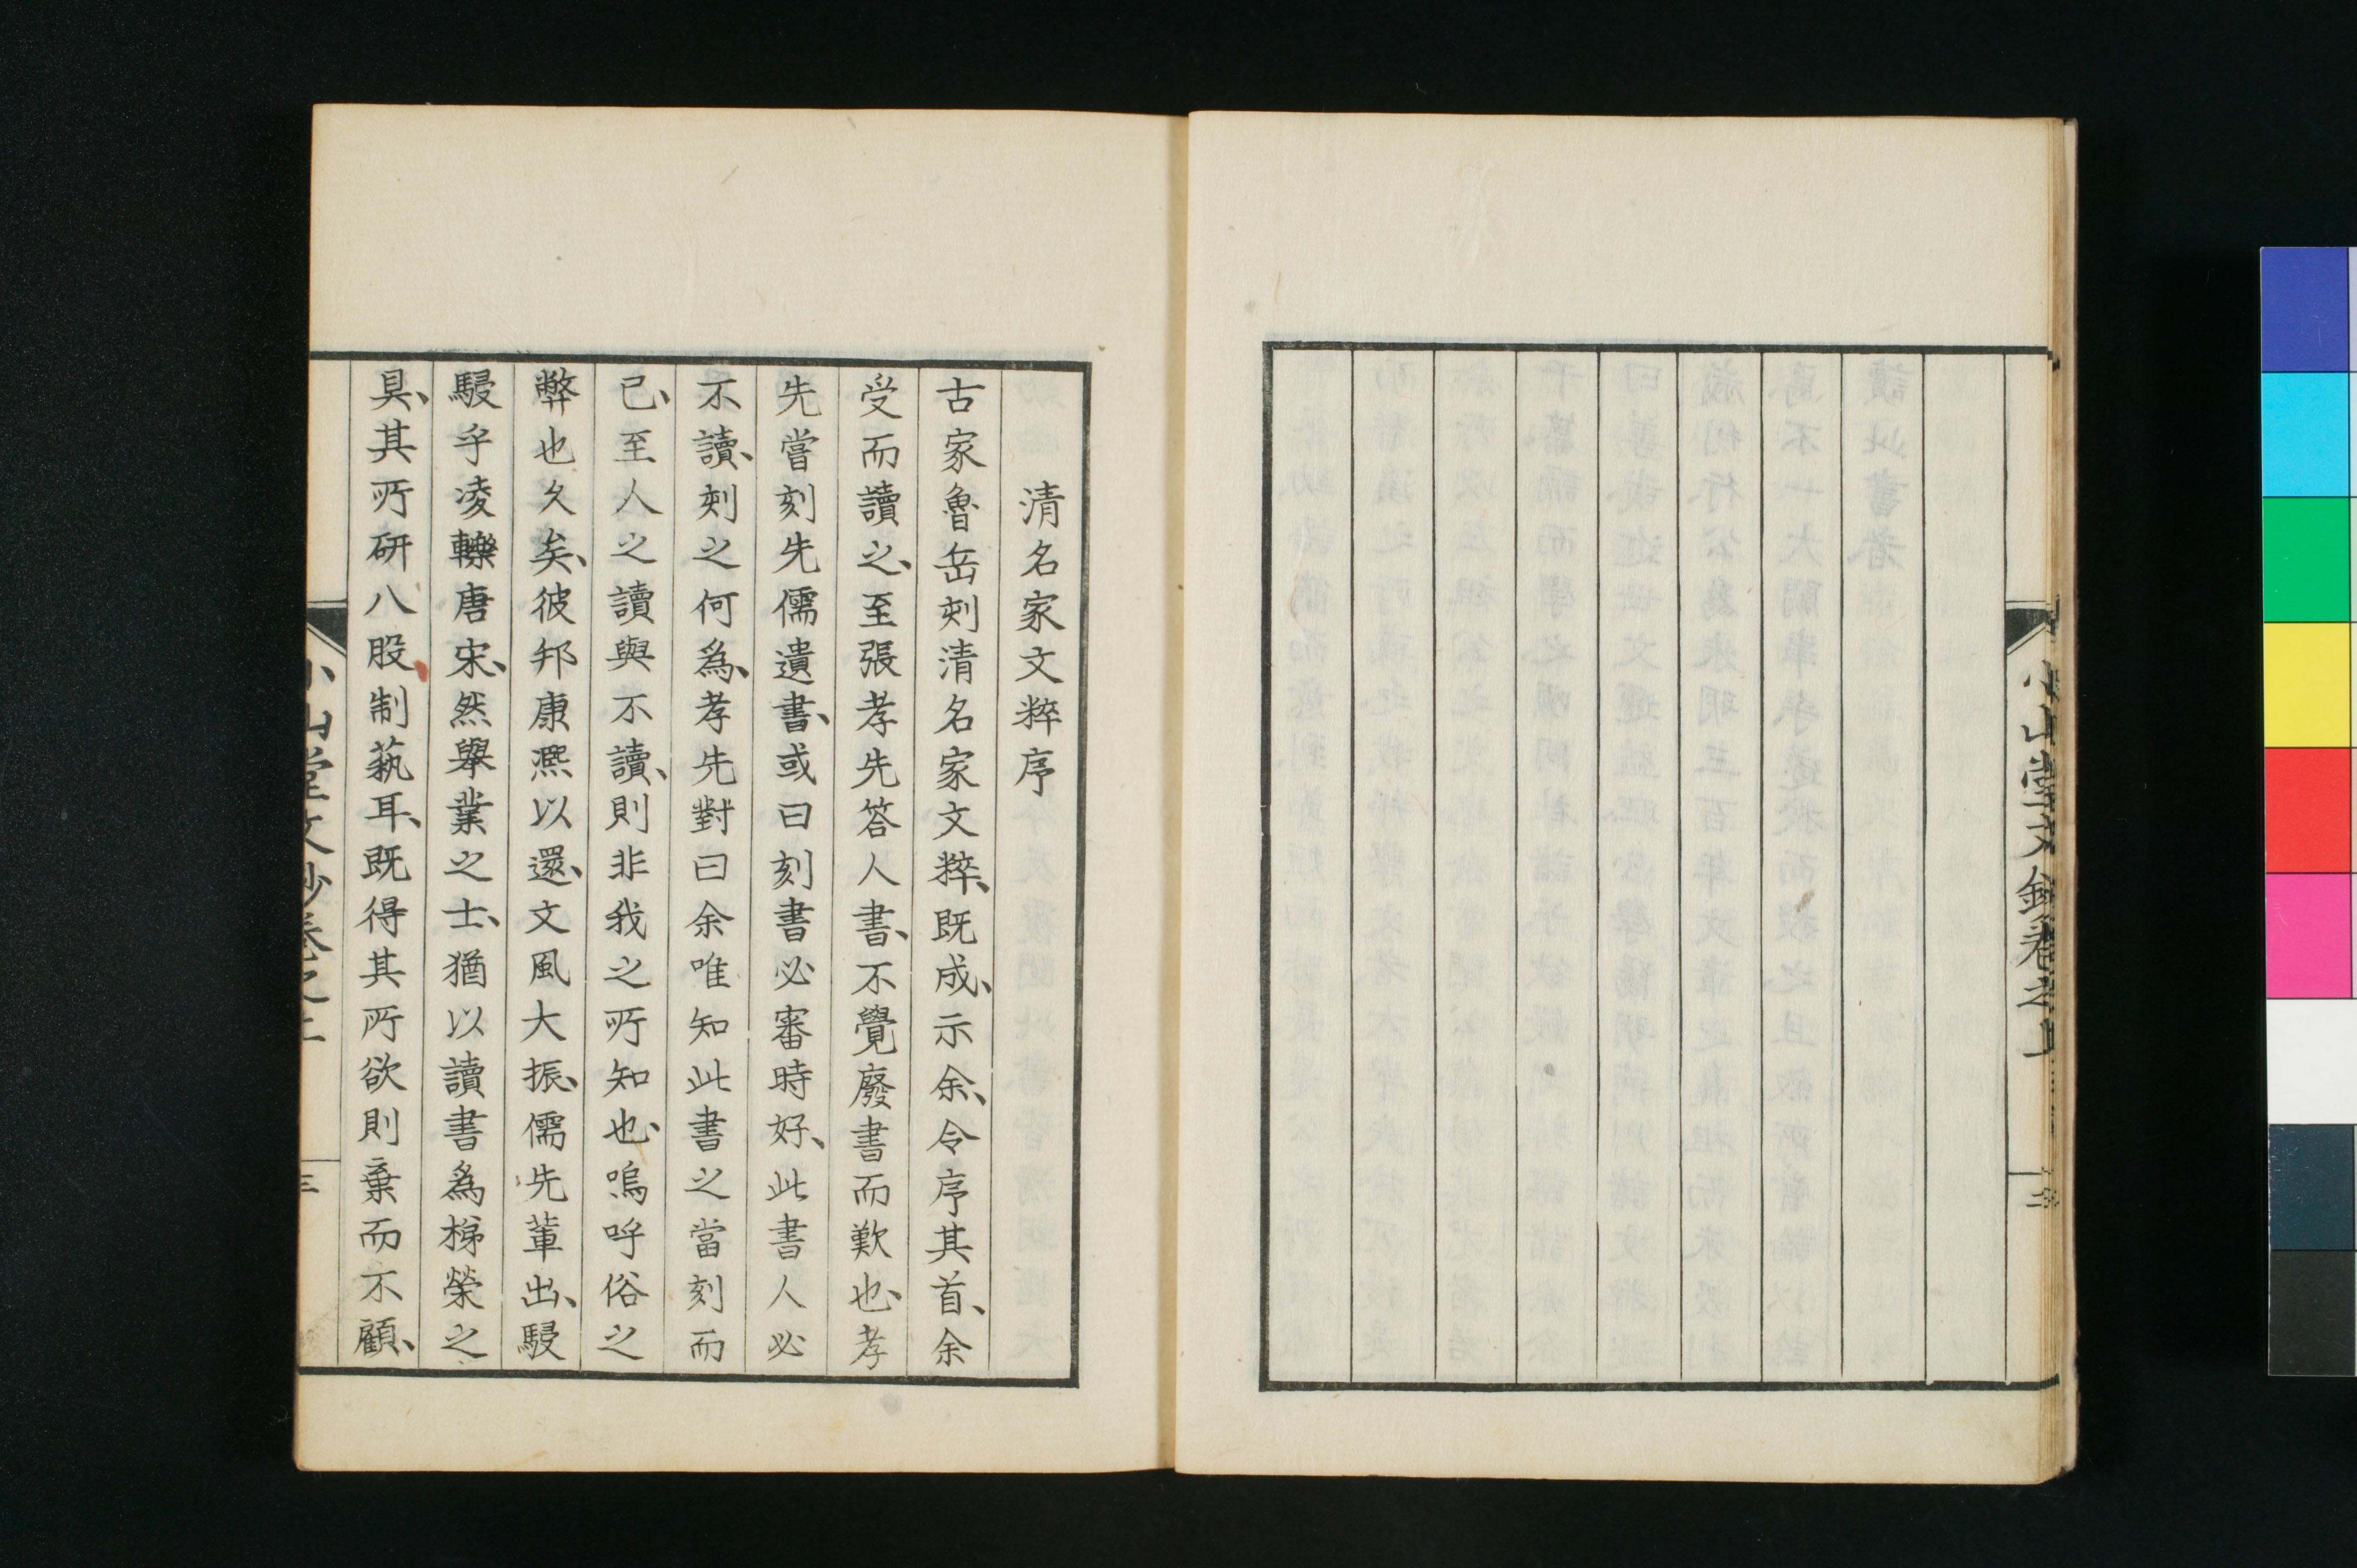 小山堂文鈔卷之上
清名家文粹序
古家魯岳刻清名家文粹、既成、示余、令序其首、余
受而讀之、至張孝先答人書、不覺廢書而歎也、孝
先嘗刻先儒遺書、或曰刻書必審時好、此書人必
不讀、刻之何為、孝先對曰余唯知此書之當刻而
已、至人之讀與不讀、則非我之所知也、嗚呼俗之
弊也久矣、彼邦康熙以還、文風大振、儒先輩出、駸
駸乎凌轢唐宋、然舉業之士、猶以讀書為梯榮之
具、其所研八股制藝耳、既得其所欲則棄而不顧、
小山堂文鈔卷之上
三